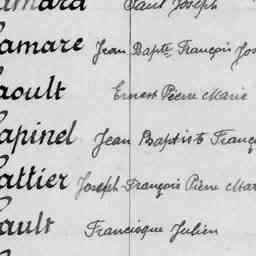 amard Paul Joseph
amare Jean Bapte François Jos
aoult Ernest Pierre Marie
apinel Jean Baptiste Franç
attier Joseph François Pierre Mar
ault Francisque Julien